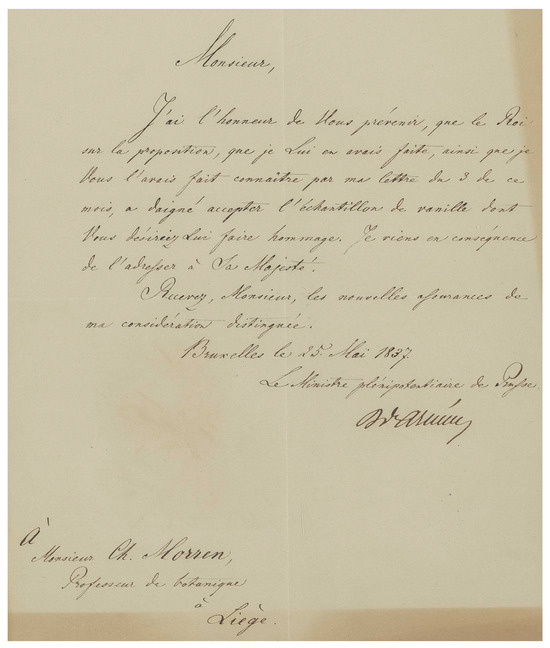 Monsieur,
J'ai l'honneur de Vous prévenir, que le Roi
sur la proposition, que je Lui en avais faite, ainsi que je
Vous l'avais fait connaître par ma lettre du 3 de ce
mois, a daigné accepter l'échantillon de vanille dont
Vous désiriez Lui faire hommage. Je viens en conséquence
de l'adresser à Sa Majesté.
Recevez, Monsieur, les nouvelles assurances de
ma considération distinguée.
Bruxelles le 25 Mai 1837.
Le Ministre plénipotentiaire de Prusse
Arnim
À
Monsieur Ch. Morren,
Professeur de botanique
à
Liège.